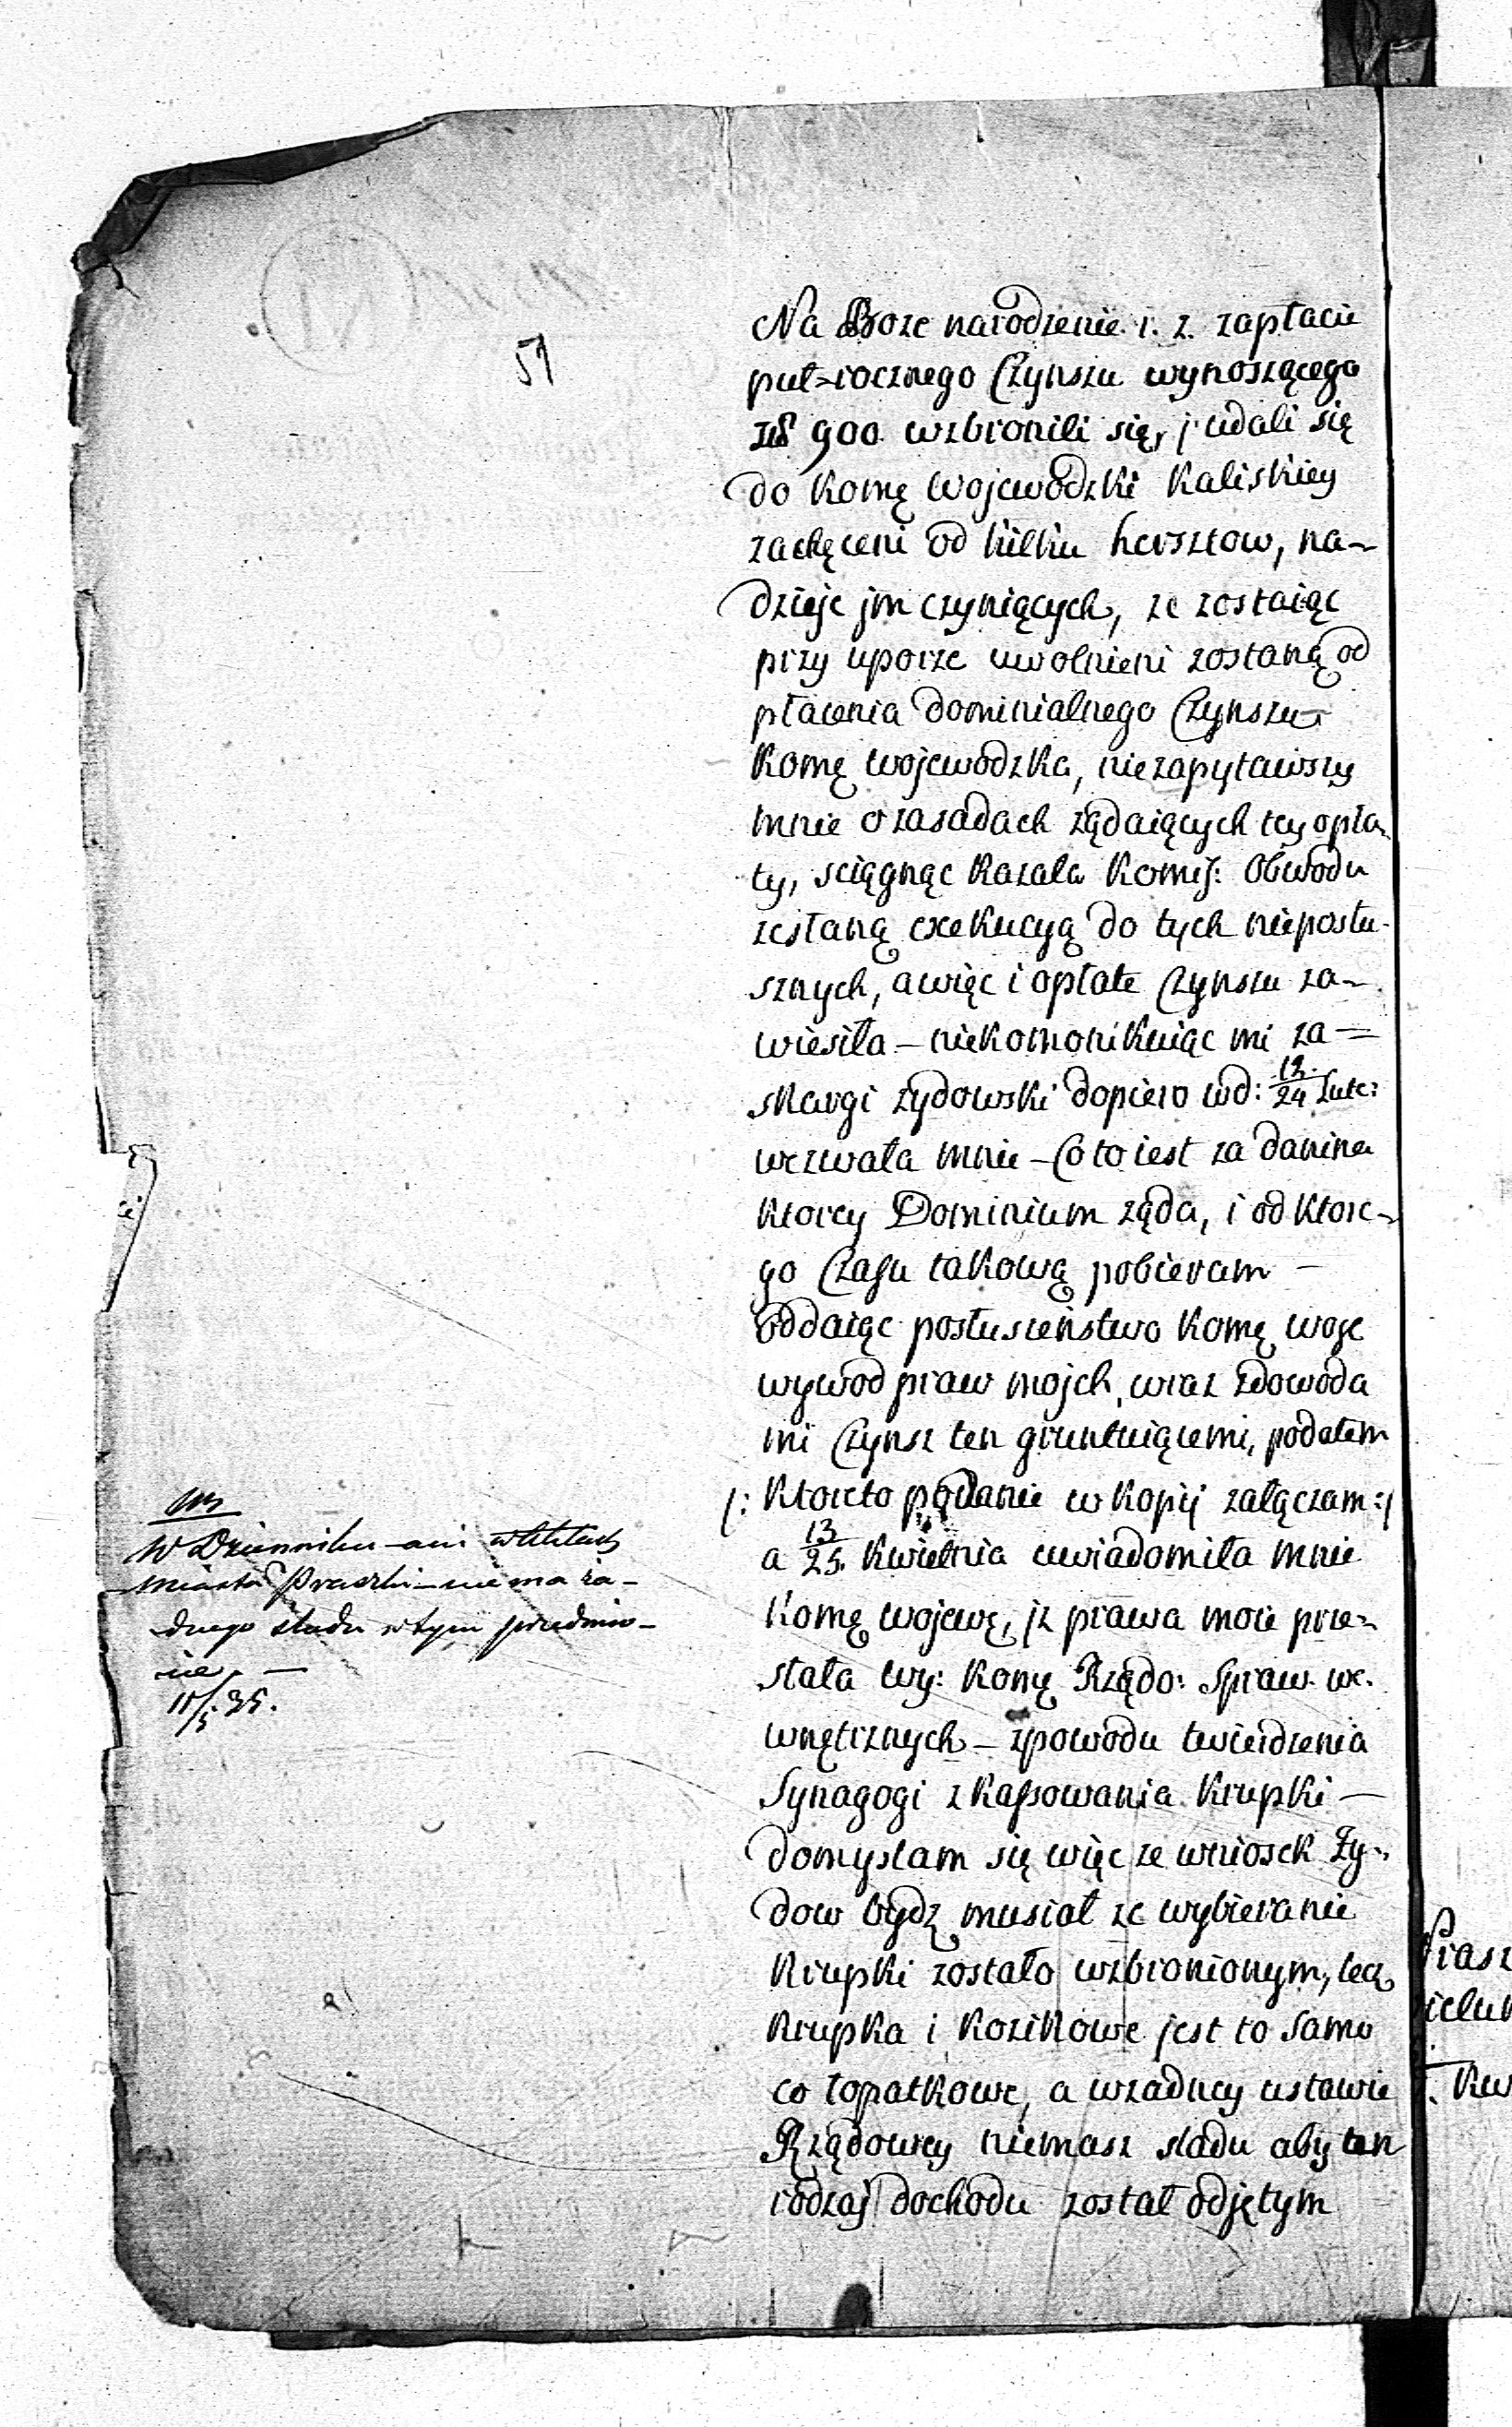 51
Na Boze narodzenie r. z. zapłacie
puł=rocznego Czynszu wynoszącego
złł 900 wzbronili się, j udali się
do Komę Wojewodzki Kaliskiey
zachęceni od kilku hersztow, na-
dzieje jm czyniących, ze zostaiąc
przy uporze uwolnieni zostaną od
płacenia dominialnego Czynszu
Komę wojewodzka, niezapytawszy
mnie o zasadach ządaiących tey opła-
ty, sciągnąc Kazała Komis: Obwodu
zesłaną exekucyą do tych nieposłu-
sznych, a więc i opłate Czynszu za-
wiesiła – niekomonikuiąc mi za=
skargi zydowski dopiero wd: 12/24 Lute:
wezwała mnie – Co to iest za danina
Ktorey Dominium ząda, i od Ktore-
go Czasu takową pobieram –
Oddaiąc posłuszeństwo Komę woje
wywod praw mojch, wraz zdowoda
mi Czynsz ten gruntuiącemi, podałem
/: Ktoreto podanie w Kopij załączam :/
a 13/25 Kwietnia uwiadomiła mnie
Komę wojewę, jz prawa moie prze-
słała wy: Komę Rządo: Spraw. we.
wnętrznych – zpowodu twierdzenia
Synagogi z Kassowania Krupki –
domyslam się więc ze wniosek Zy-
dow bydz musiał ze wybieranie
Krupki zostało wzbronionym, lecz
Krupka i Kozikowe jest to samo
co łopatkowe, a wzadney ustawie
Rządowey niemasz sladu aby ten
rodzaj dochodu został odjętym
W Dzienniku – ani w aktach
miasta Praszki – nie ma ża-
dnego sladu w tym przedmio-
cie. –
11/5 35.